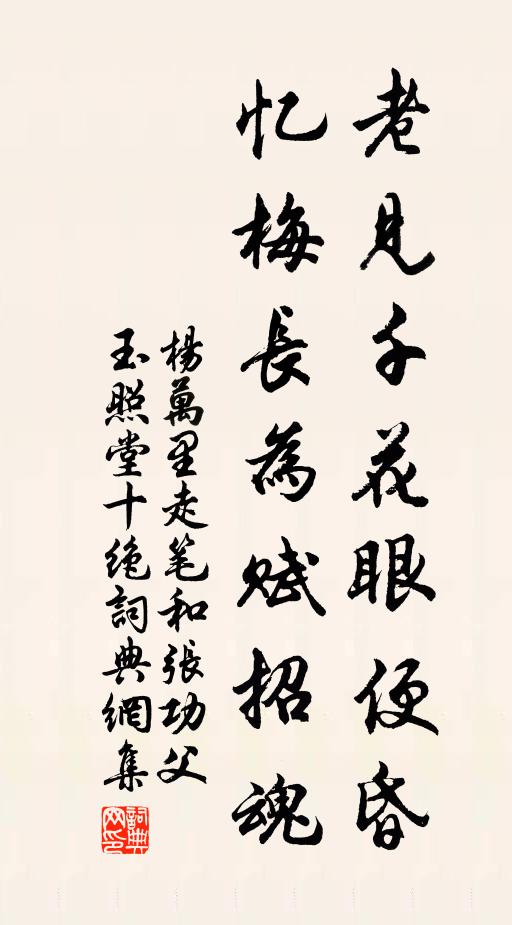 老见千花眼便昏
忆梅長為赋招魂
楊萬里走笔和張功父
玉照堂十絶詞典網集
詞典網印